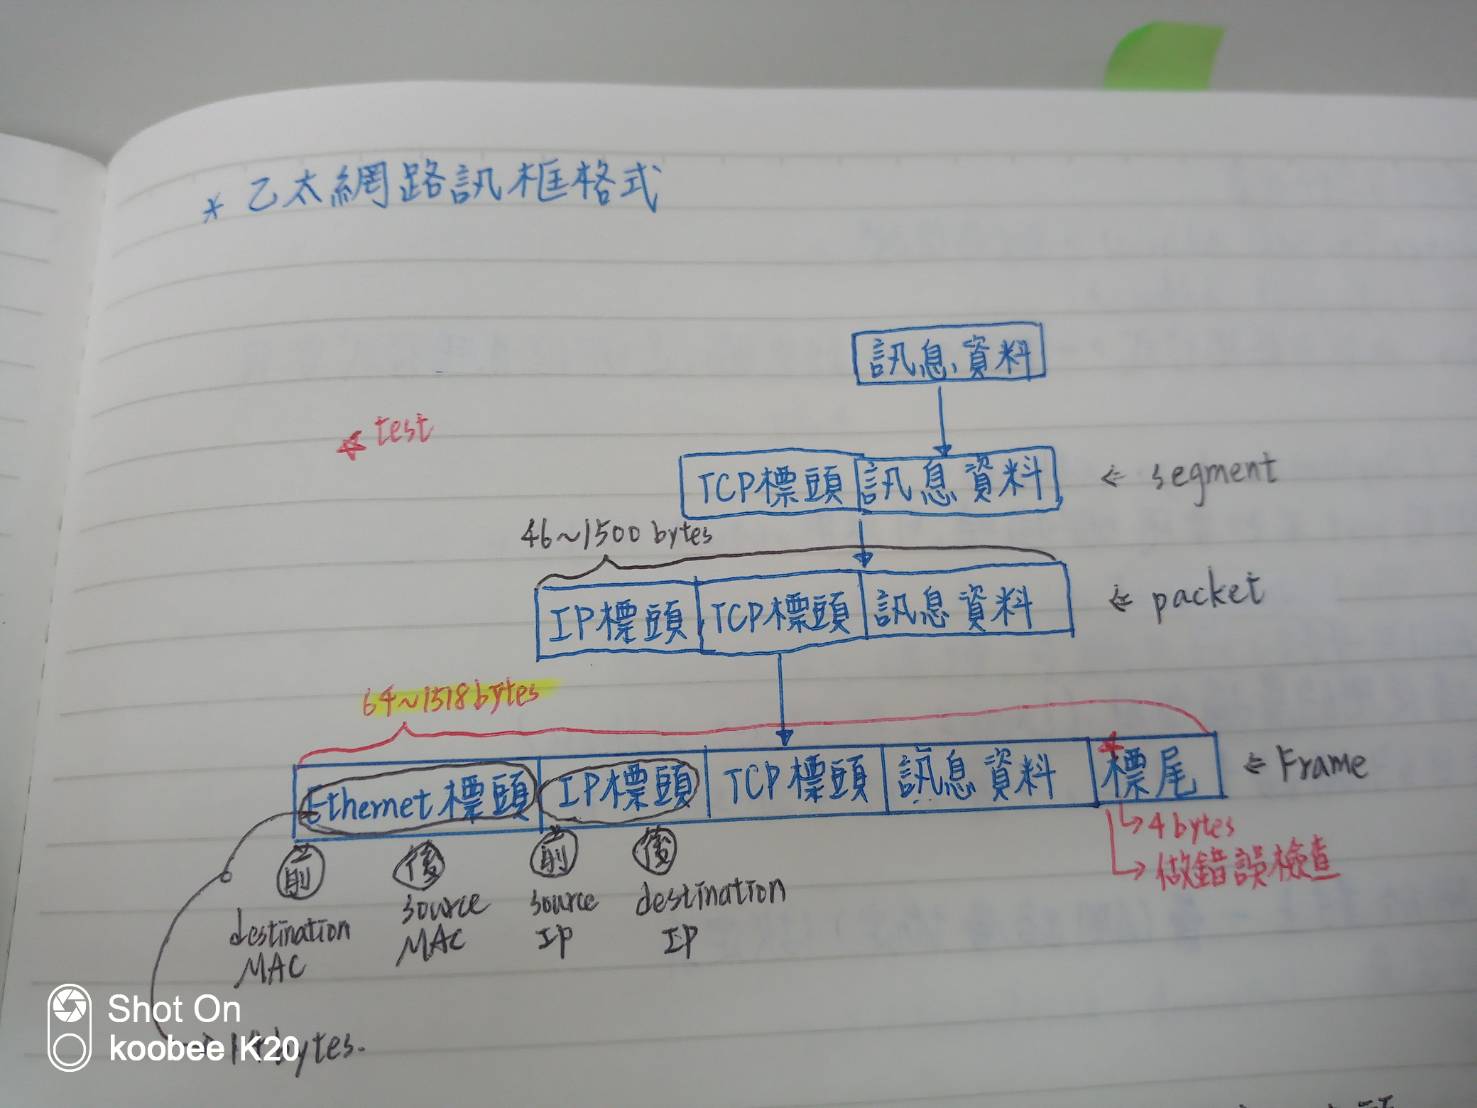 * 乙太網路訊框格式
訊息資料
☆ test
TCP標頭 訊息資料 ← segment
46~1500 bytes
IP標頭 TCP標頭 訊息資料 ← packet
64~1518 bytes
Ethernet 標頭 IP標頭 TCP標頭 訊息資料 標尾 ← Frame
→ 4 bytes
→ 做錯誤檢查
前 後 前 後
destination MAC
source MAC
source IP
destination IP
bytes.
Shot On
koobee K20